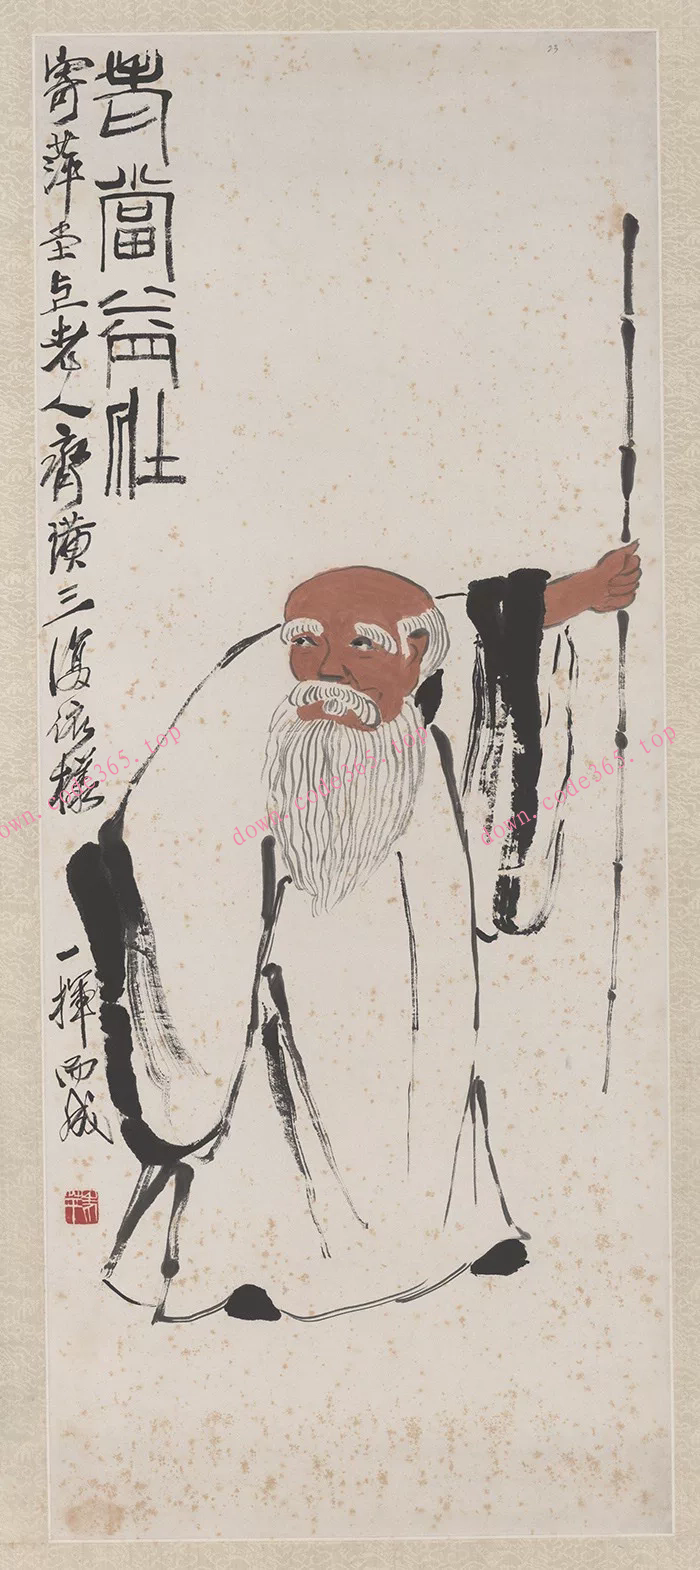 23
老當益壯
寄萍堂上老人齊璜三復依樣
一揮而成
down.code365.top
down.code365.top
down.code365.top